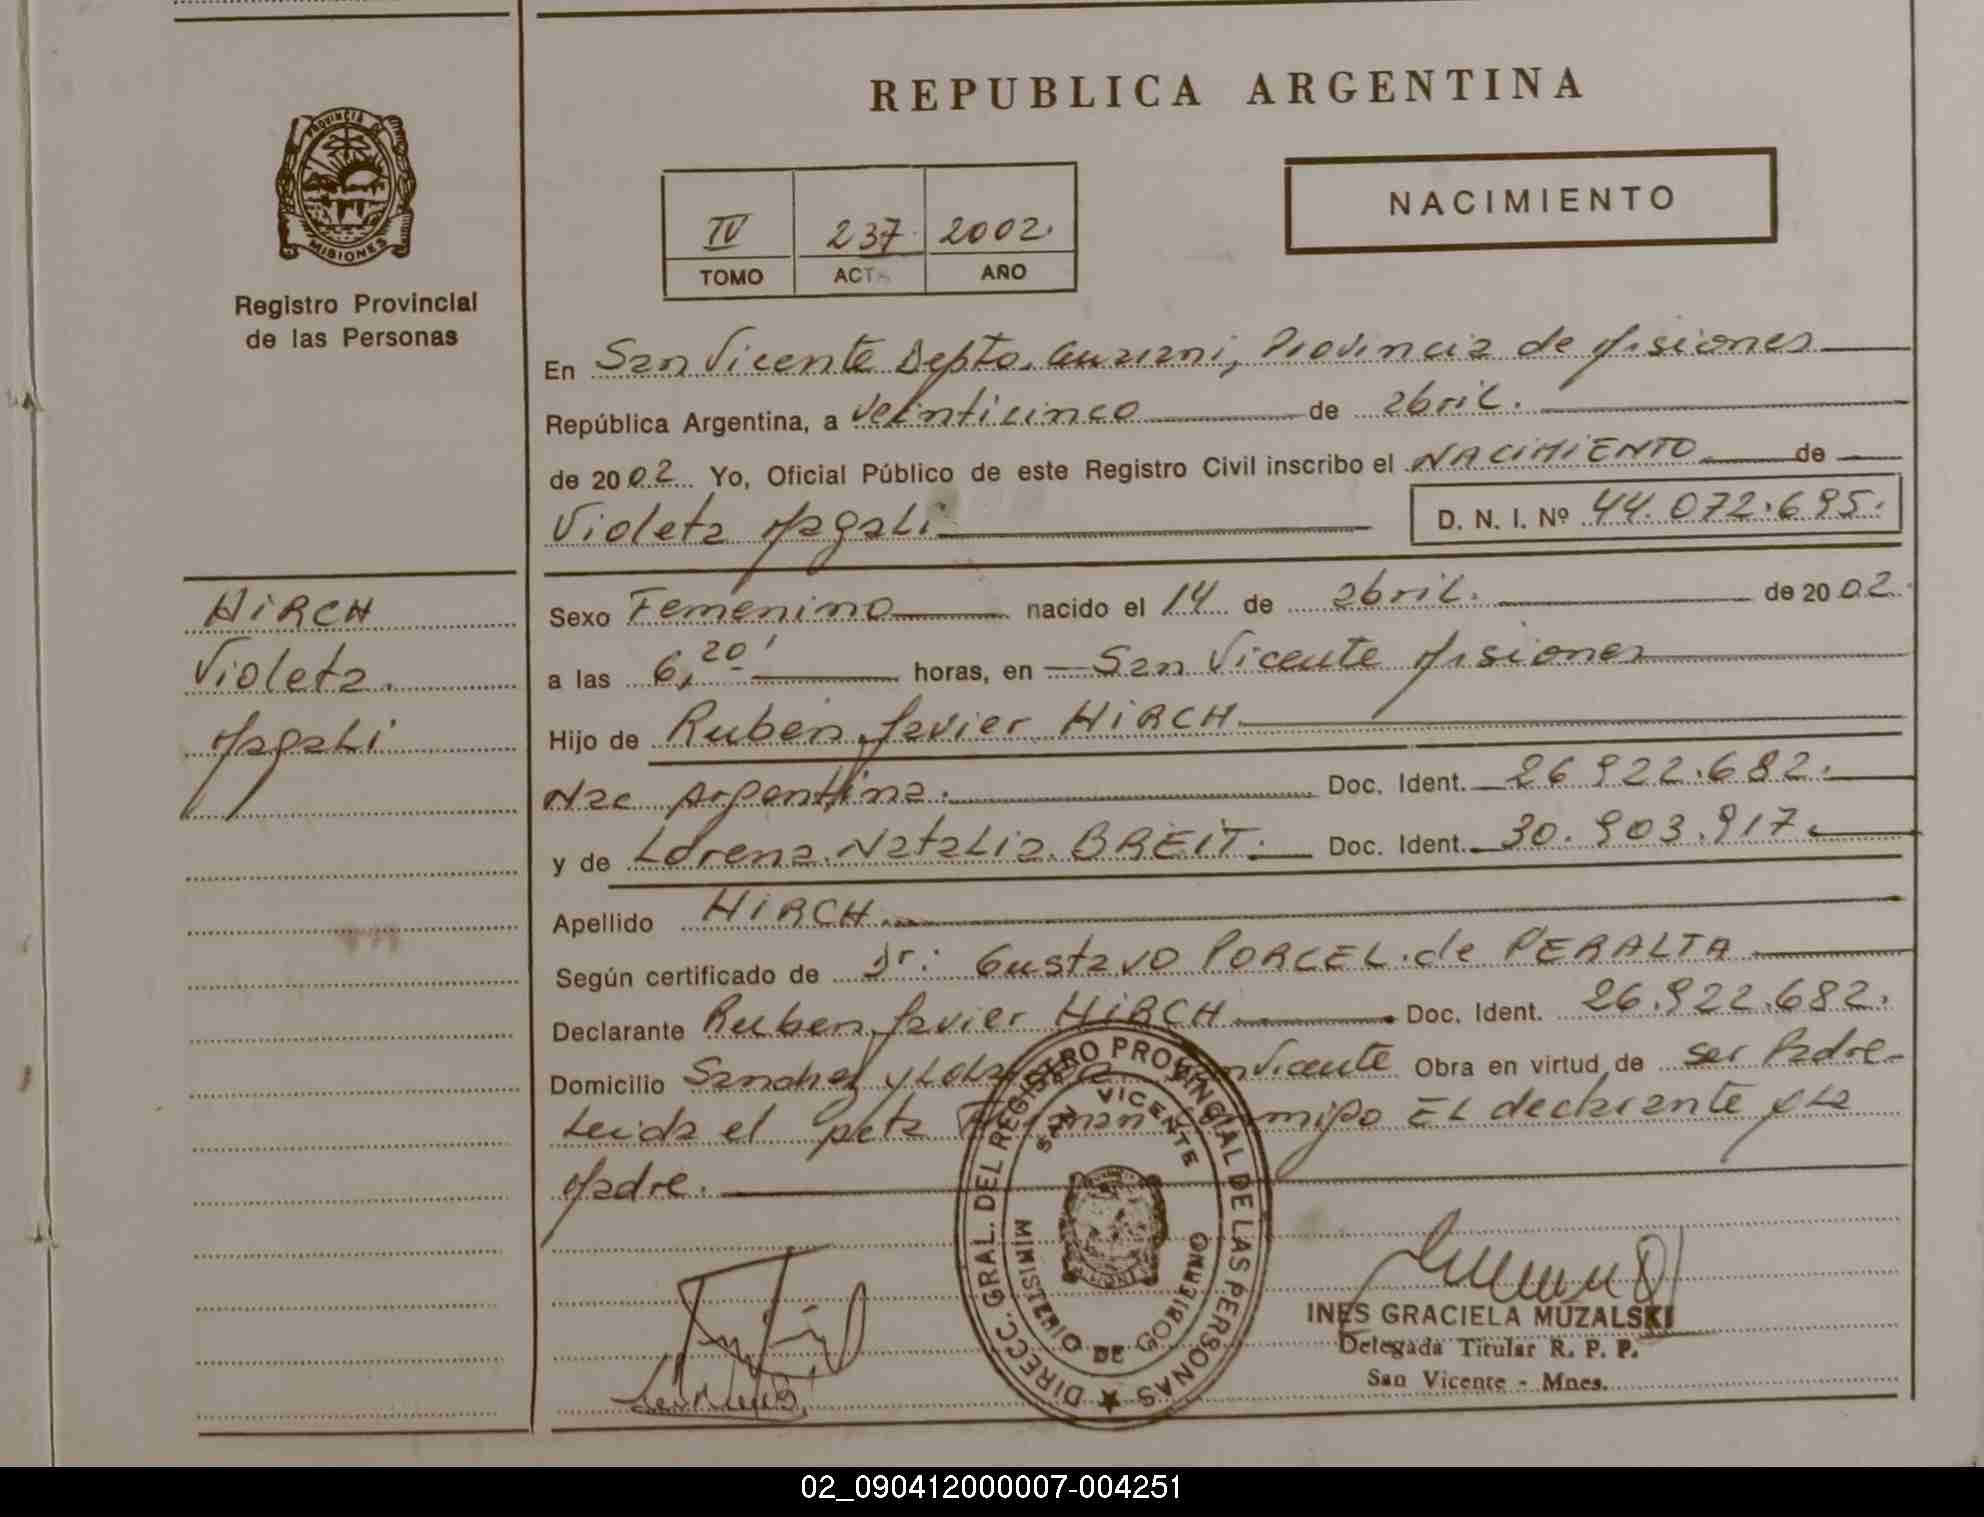 REPUBLICA ARGENTINA
PROVINCIA DE
MISIONES
Registro Provincial
de las Personas
NACIMIENTO
IV 237 2002.
TOMO ACTA AÑO
En San Vicente Depto. Guarani, Provincia de Misiones
República Argentina, a veinticinco de abril.
de 2002 Yo, Oficial Público de este Registro Civil inscribo el NACIMIENTO de
Violeta Magali D. N. I. Nº 44.072.695.
HIRCH
Violeta
Magali
Sexo Femenino nacido el 14 de abril. de 2002.
a las 6,20' horas, en San Vicente Misiones
Hijo de Ruben Javier HIRCH
Nac Argentina. Doc. Ident. 26.922.682.
y de Lorena Natalia BREIT. Doc. Ident. 30.903.917.
Apellido HIRCH
Según certificado de Dr: Gustavo PORCEL de PERALTA
Declarante Ruben Javier HIRCH Doc. Ident. 26.922.682.
Domicilio Sanchez y Vicente Obra en virtud de ser Padre
Leida el acta Firman conmigo EL declarante y La
Madre.
DIRECC. GRAL. DEL REGISTRO PROVINCIAL DE LAS PERSONAS
SAN VICENTE
MINISTERIO DE GOBIERNO
INES GRACIELA MUZALSKI
Delegada Titular R. P. P.
San Vicente - Mnes.
02_090412000007-004251